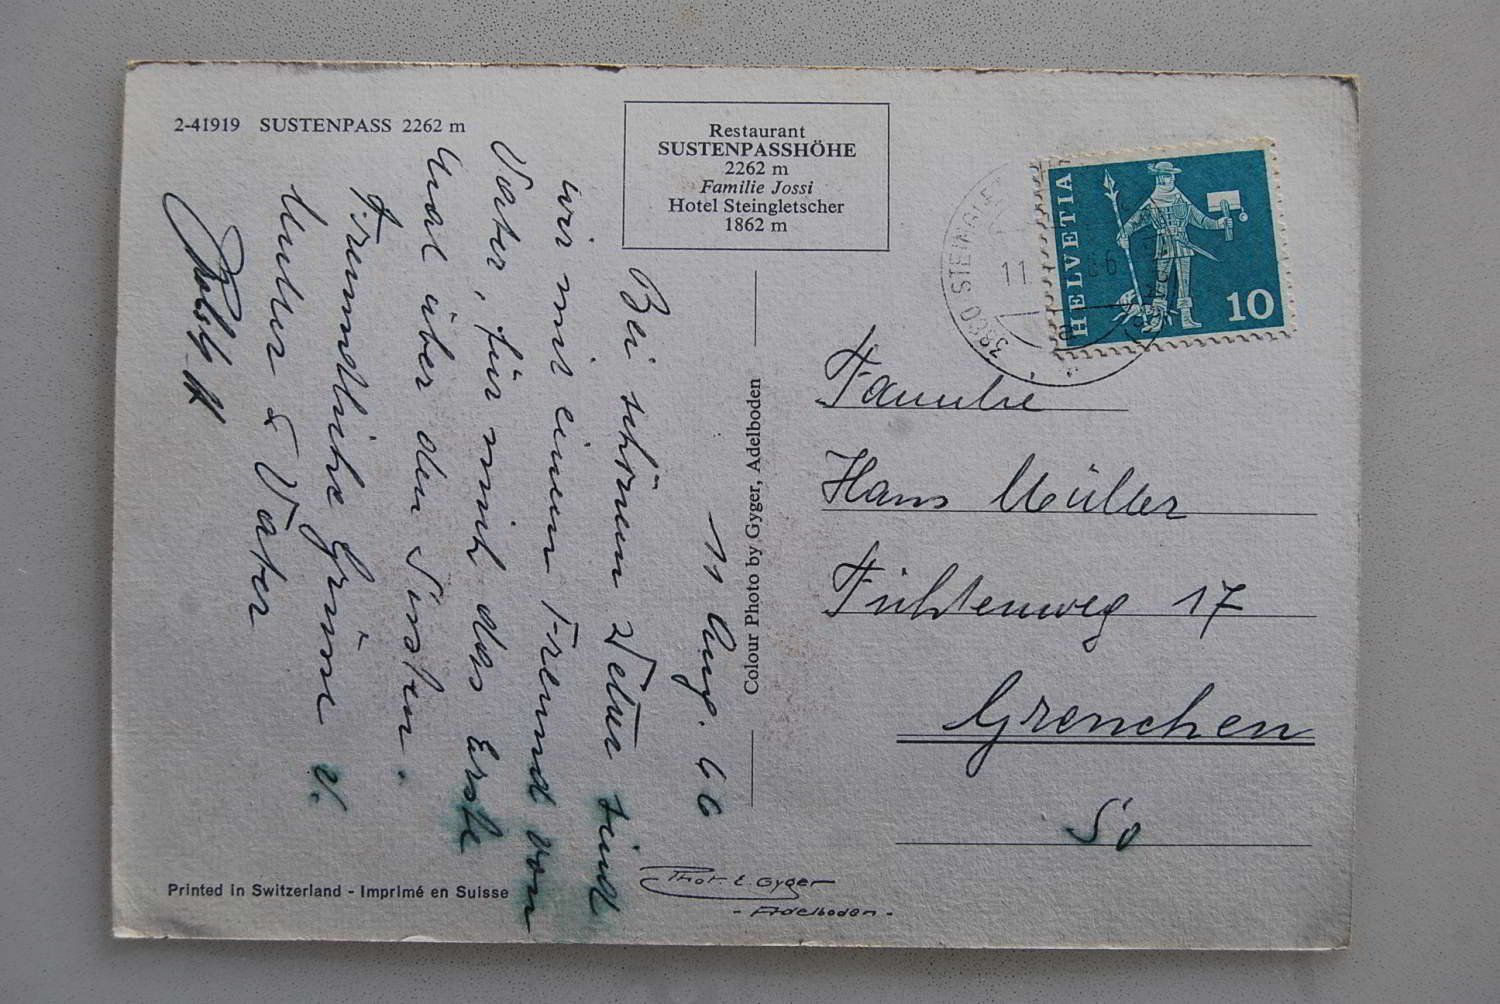 2-41919 SUSTENPASS 2262 m
Restaurant
SUSTENPASSHÖHE
2262 m
Familie Jossi
Hotel Steingletscher
1862 m
11 Aug. 66
Bei schönem Wetter sind
wir mit einem Freund von
Vater, für mich das Erste
Mal über den Susten.
Freundliche Grüsse v.
Mutter & Vater
Colour Photo by Gyger, Adelboden
HELVETIA
10
11
Familie
Hans Müller
Fichtenweg 17
Grenchen
So
Printed in Switzerland - Imprimé en Suisse
Phot. E. Gyger
- Adelboden -